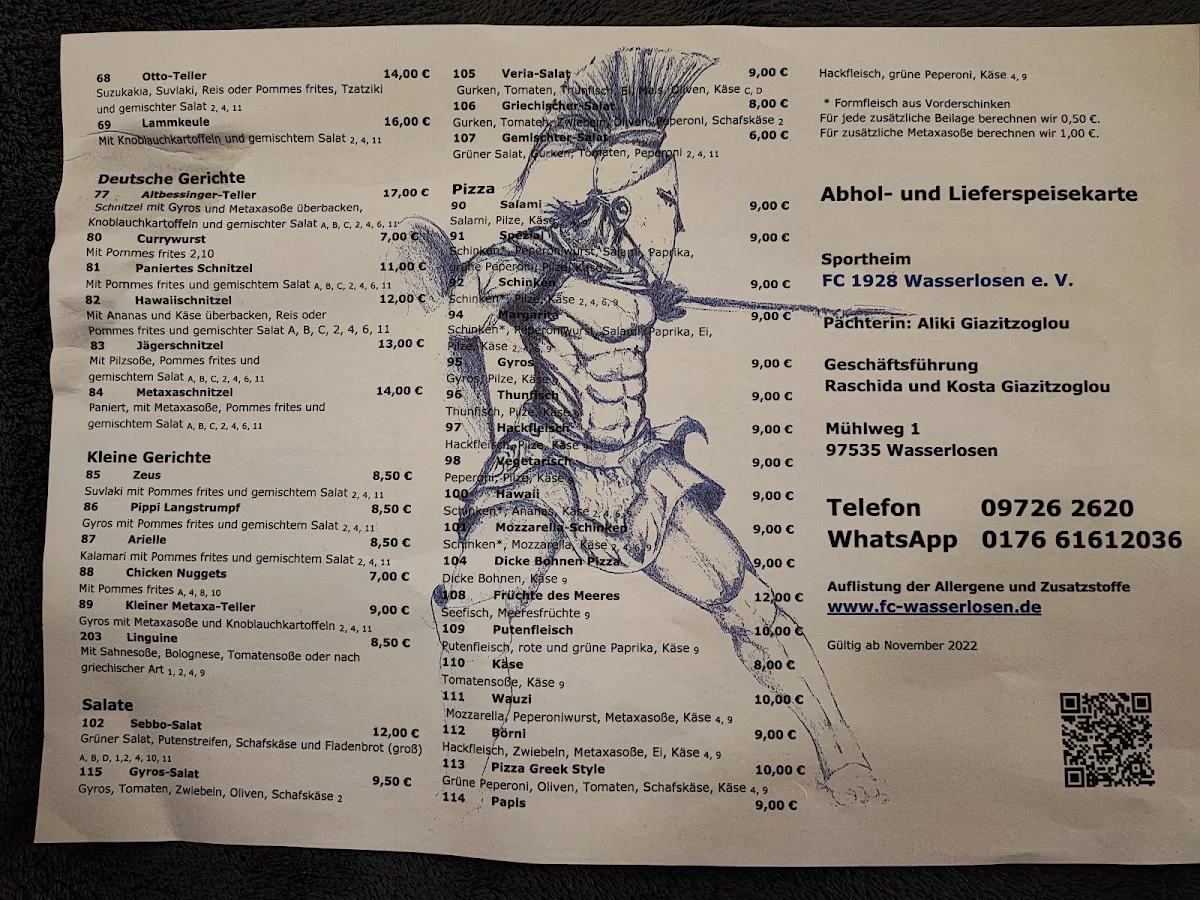 68 Otto-Teller 14,00 €
Suzukakia, Suvlaki, Reis oder Pommes frites, Tzatziki
und gemischter Salat 2, 4, 11
69 Lammkeule 16,00 €
Mit Knoblauchkartoffeln und gemischtem Salat 2, 4, 11
Deutsche Gerichte
77 Altbessinger-Teller 17,00 €
Schnitzel mit Gyros und Metaxasoße überbacken,
Knoblauchkartoffeln und gemischter Salat A, B, C, 2, 4, 6, 11
80 Currywurst 7,00 €
Mit Pommes frites 2,10
81 Paniertes Schnitzel 11,00 €
Mit Pommes frites und gemischtem Salat A, B, C, 2, 4, 6, 11
82 Hawaiischnitzel 12,00 €
Mit Ananas und Käse überbacken, Reis oder
Pommes frites und gemischter Salat A, B, C, 2, 4, 6, 11
83 Jägerschnitzel 13,00 €
Mit Pilzsoße, Pommes frites und
gemischtem Salat A, B, C, 2, 4, 6, 11
84 Metaxaschnitzel 14,00 €
Paniert, mit Metaxasoße, Pommes frites und
gemischtem Salat A, B, C, 2, 4, 6, 11
Kleine Gerichte
85 Zeus 8,50 €
Suvlaki mit Pommes frites und gemischtem Salat 2, 4, 11
86 Pippi Langstrumpf 8,50 €
Gyros mit Pommes frites und gemischtem Salat 2, 4, 11
87 Arielle 8,50 €
Kalamari mit Pommes frites und gemischtem Salat 2, 4, 11
88 Chicken Nuggets 7,00 €
Mit Pommes frites A, 4, 8, 10
89 Kleiner Metaxa-Teller 9,00 €
Gyros mit Metaxasoße und Knoblauchkartoffeln 2, 4, 11
203 Linguine 8,50 €
Mit Sahnesoße, Bolognese, Tomatensoße oder nach
griechischer Art 1, 2, 4, 9
Salate
102 Sebbo-Salat 12,00 €
Grüner Salat, Putenstreifen, Schafskäse und Fladenbrot (groß)
A, B, D, 1,2, 4, 10, 11
115 Gyros-Salat 9,50 €
Gyros, Tomaten, Zwiebeln, Oliven, Schafskäse 2
105 Veria-Salat 9,00 €
Gurken, Tomaten, Thunfisch, Ei, Mais, Oliven, Käse C, D
106 Griechischer-Salat 8,00 €
Gurken, Tomaten, Zwiebeln, Oliven, Peperoni, Schafskäse 2
107 Gemischter-Salat 6,00 €
Grüner Salat, Gurken, Tomaten, Peperoni 2, 4, 11
Pizza
90 Salami 9,00 €
Salami, Pilze, Käse
91 Spezial 9,00 €
Schinken*, Peperoniwurst, Salami, Paprika,
grüne Peperoni, Pilze, Käse
92 Schinken 9,00 €
Schinken*, Pilze, Käse 2, 4, 6, 9
94 Margarita 9,00 €
Schinken*, Peperoniwurst, Salami, Paprika, Ei,
Pilze, Käse 2, 4, 6, 9
95 Gyros 9,00 €
Gyros, Pilze, Käse 9
96 Thunfisch 9,00 €
Thunfisch, Pilze, Käse
97 Hackfleisch 9,00 €
Hackfleisch, Pilze, Käse
98 Vegetarisch 9,00 €
Peperoni, Pilze, Käse 9
100 Hawaii 9,00 €
Schinken*, Ananas, Käse 2, 4, 6, 9
101 Mozzarella-Schinken 9,00 €
Schinken*, Mozzarella, Käse 2, 4, 6, 9
104 Dicke Bohnen Pizza 9,00 €
Dicke Bohnen, Käse 9
108 Früchte des Meeres 12,00 €
Seefisch, Meeresfrüchte 9
109 Putenfleisch 10,00 €
Putenfleisch, rote und grüne Paprika, Käse 9
110 Käse 8,00 €
Tomatensoße, Käse 9
111 Wauzi 10,00 €
Mozzarella, Peperoniwurst, Metaxasoße, Käse 4, 9
112 Börni 9,00 €
Hackfleisch, Zwiebeln, Metaxasoße, Ei, Käse 4, 9
113 Pizza Greek Style 10,00 €
Grüne Peperoni, Oliven, Tomaten, Schafskäse, Käse 4, 9
114 Papis 9,00 €
Hackfleisch, grüne Peperoni, Käse 4, 9
* Formfleisch aus Vorderschinken
Für jede zusätzliche Beilage berechnen wir 0,50 €.
Für zusätzliche Metaxasoße berechnen wir 1,00 €.
Abhol- und Lieferspeisekarte
Sportheim
FC 1928 Wasserlosen e. V.
Pächterin: Aliki Giazitzoglou
Geschäftsführung
Raschida und Kosta Giazitzoglou
Mühlweg 1
97535 Wasserlosen
Telefon 09726 2620
WhatsApp 0176 61612036
Auflistung der Allergene und Zusatzstoffe
www.fc-wasserlosen.de
Gültig ab November 2022